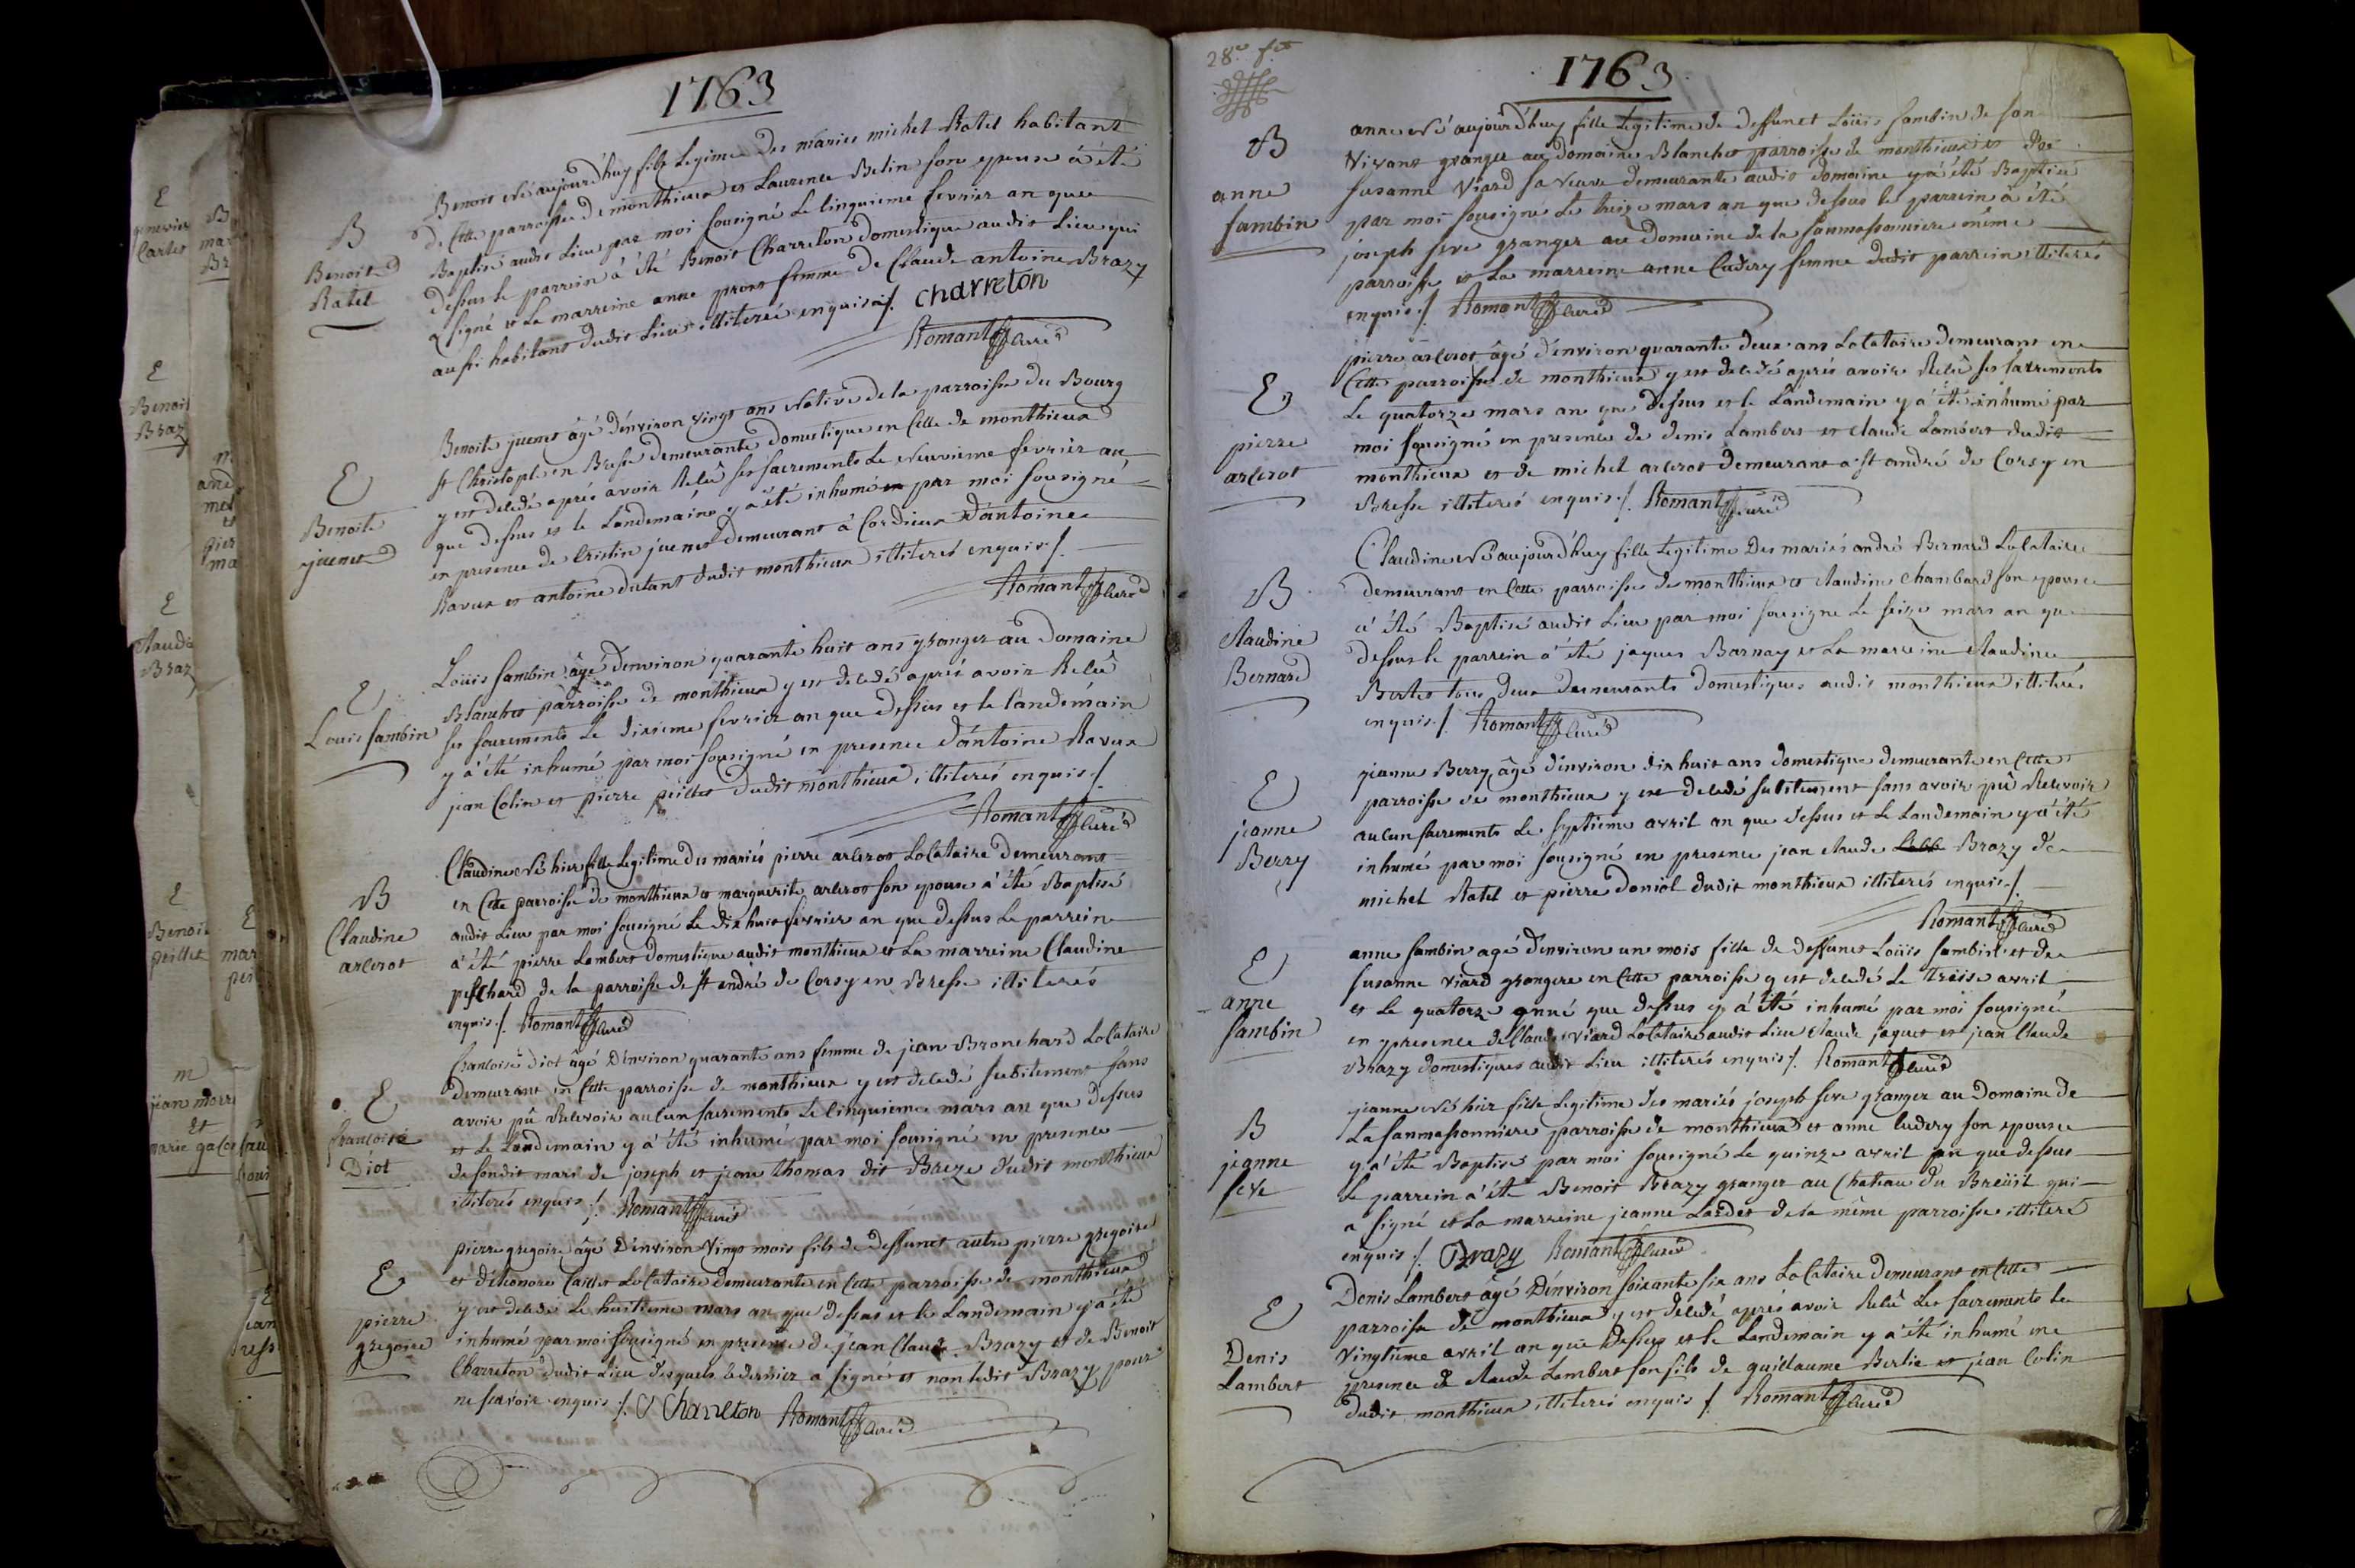 1763
B
Benoit
Ratel
Benoit né aujourd'huy fils Legime des mariés michel Ratel habitant
de Cette parroisse de monthieux et Laurence Belin son epouse a été
Baptisé audit Lieu par moi sousigné Le cinquieme fevrier an que
dessus le parrein a été Benoit Charreton domestique audit Lieu qui
a signé et La marreine anne prost femme de Claude antoine Brazy
aussi habitant dudit Lieu illiterée enquise /. charreton
Romant Curé
E
Benoite
juenet
Benoite juenet âgé d'environ vingt ans Native de la parroisse du Bourg
st Christople en Bresse demeurante domestique en Celle de monthieux
y est decedé aprés avoir Recû ses sacrements Le Neuvieme fevrier an
que dessus et le Landemain y a été inhumé par moi sousigné
en presence de Cristin juenet demeurant à Cordieux d'antoine
Ravux et antoine dutant dudit monthieux illiterés enquis /.
Romant Curé
E
Louis Sambin
Loüis Sambin âgé d'environ quarante huit ans granger au Domaine
Blanchet parroisse de monthieux y est decedé aprés avoir Recû
ses sacrements Le dixieme fevrier an que dessus et le Landemain
y a été inhumé par moi sousigné en presence d'antoine Ravux
jean Colin et pierre peillet dudit monthieux illiterés enquis /.
Romant Curé
B
Claudine
arcerot
Claudine Né hier fille Legitime des mariés pierre arcerot Locataire Demeurant
en Cette parroisse de monthieux et marguerite arcerot son epouse a été Baptisé
audit Lieu par moi sousigné Le dix huit fevrier an que dessus Le parrein
a été pierre Lambert Domestique audit monthieux et La marreine Claudine
peschard de la parroisse de st andré de Corsy en Bresse illiterés
enquis /. Romant Curé
E
francoise
Diot
francoise diot âgé D'environ quarante ans femme de jean Bronchard Locataire
demeurant en Cette parroisse de monthieux y est decedé subitement sans
avoir pû Recevoir aucun sacrements Le cinquieme mars an que dessus
et Le Landemain y a été inhumé par moi sousigné en presence
de sondit mari de joseph et jean thomas dit Breze dudit monthieux
illiterés enquis /. Romant Curé
E
pierre
gregoire
pierre gregoire âgé D'environ Vingt mois fils de deffunct autre pierre gregoire
et d'éleonore Caillet Locataire demeurante en Cette parroisse de monthieux
y est decedé Le huitieme mars an que dessus et le Landemain y a été
inhumé par moi sousigné en presence de jean Claude Brazy et de Benoit
Charreton dudit Lieu desquels Ce dernier a signé et non ledit Brazy pour
ne scavoir enquis /. Charreton Romant Curé
28e ft
1763
B
anne
Sambin
anne Né aujourd'huy fille Legitime de deffunct Loüis Sambin de son
Vivant granger au Domaine Blanchet parroisse de monthieux et de
susanne Viard sa Veuve demeurante audit domaine y a été Baptisé
par moi sousigné Le treize mars an que dessus le parrein a été
joseph seve granger au Domaine de la sanmassonniere même
parroisse et La marreine anne Cudery femme dudit parrein illiterés
enquis /. Romant Curé
E
pierre
arcerot
pierre arcerot âgé d'environ quarante deux ans Locataire demeurant en
Cette parroisse de monthieux y est decedé aprés avoir Recû ses sacrements
Le quatorze mars an que dessus et le Landemain y a été inhumé par
moi sousigné en presence de denis Lambert et claude Lambert dudit
monthieux et de michel arcerot demeurant a st andré de Corsy en
Bresse illiterés enquis /. Romant Curé
B
Claudine
Bernard
Claudine Né aujourd'huy fille Legitime Des mariés andré Bernard Locataire
demeurant en Cette parroisse de monthieux et claudine Chambard son epouse
a été Baptisé audit Lieu par moi sousigné Le seize mars an que
dessus le parrein a été jaques Barnay et La marreine claudine
Bertet tous deux demeurants domestiques audit monthieux illiterés
enquis /. Romant Curé
E
jeanne
Berry
jeanne Berry âgé d'environ dix huit ans domestique demeurante en Cette
parroisse de monthieux y est decedé subitement sans avoir pû Recevoir
aucun sacrements Le septieme avril an que dessus et Le Landemain y a été
inhumé par moi sousigné en presence jean claude Brazy de
michel Ratel et pierre doniol dudit monthieux illiterés enquis /.
Romant Curé
E
anne
Sambin
anne Sambin agé d'environ un mois fille de deffunct Loüis Sambin et de
susanne viard grangere en Cette parroisse y est decedé Le treise avril
et Le quatorze anné que dessus y a été inhumé par moi sousigné
en presence de Claude Viard Locataire audit Lieu claude jaquet et jean Claude
Brazy domestiques audit Lieu illiterés enquis /. Romant Curé
B
jeanne
seve
jeanne Né hier fille Legitime des mariés joseph seve granger au Domaine de
La sanmassonniere parroisse de monthieux et anne cudery son epouse
y a été Baptisé par moi sousigné Le quinze avril an que dessus
Le parrein a été Benoit Brazy granger au Chateau du Breüil qui
a signé et La marreine jeanne Lardet de la même parroisse illiteré
enquis /. Brazy Romant Curé
E
Denis
Lambert
Denis Lambert âgé D'environ soixante six ans Locataire demeurant en Cette
parroisse de monthieux y est decedé aprés avoir Recû Les sacrements Le
Vingtieme avril an que dessus et le Landemain y a été inhumé en
presence de claude Lambert son fils de guillaume Berlie et jean Colin
dudit monthieux illiterés enquis /. Romant Curé